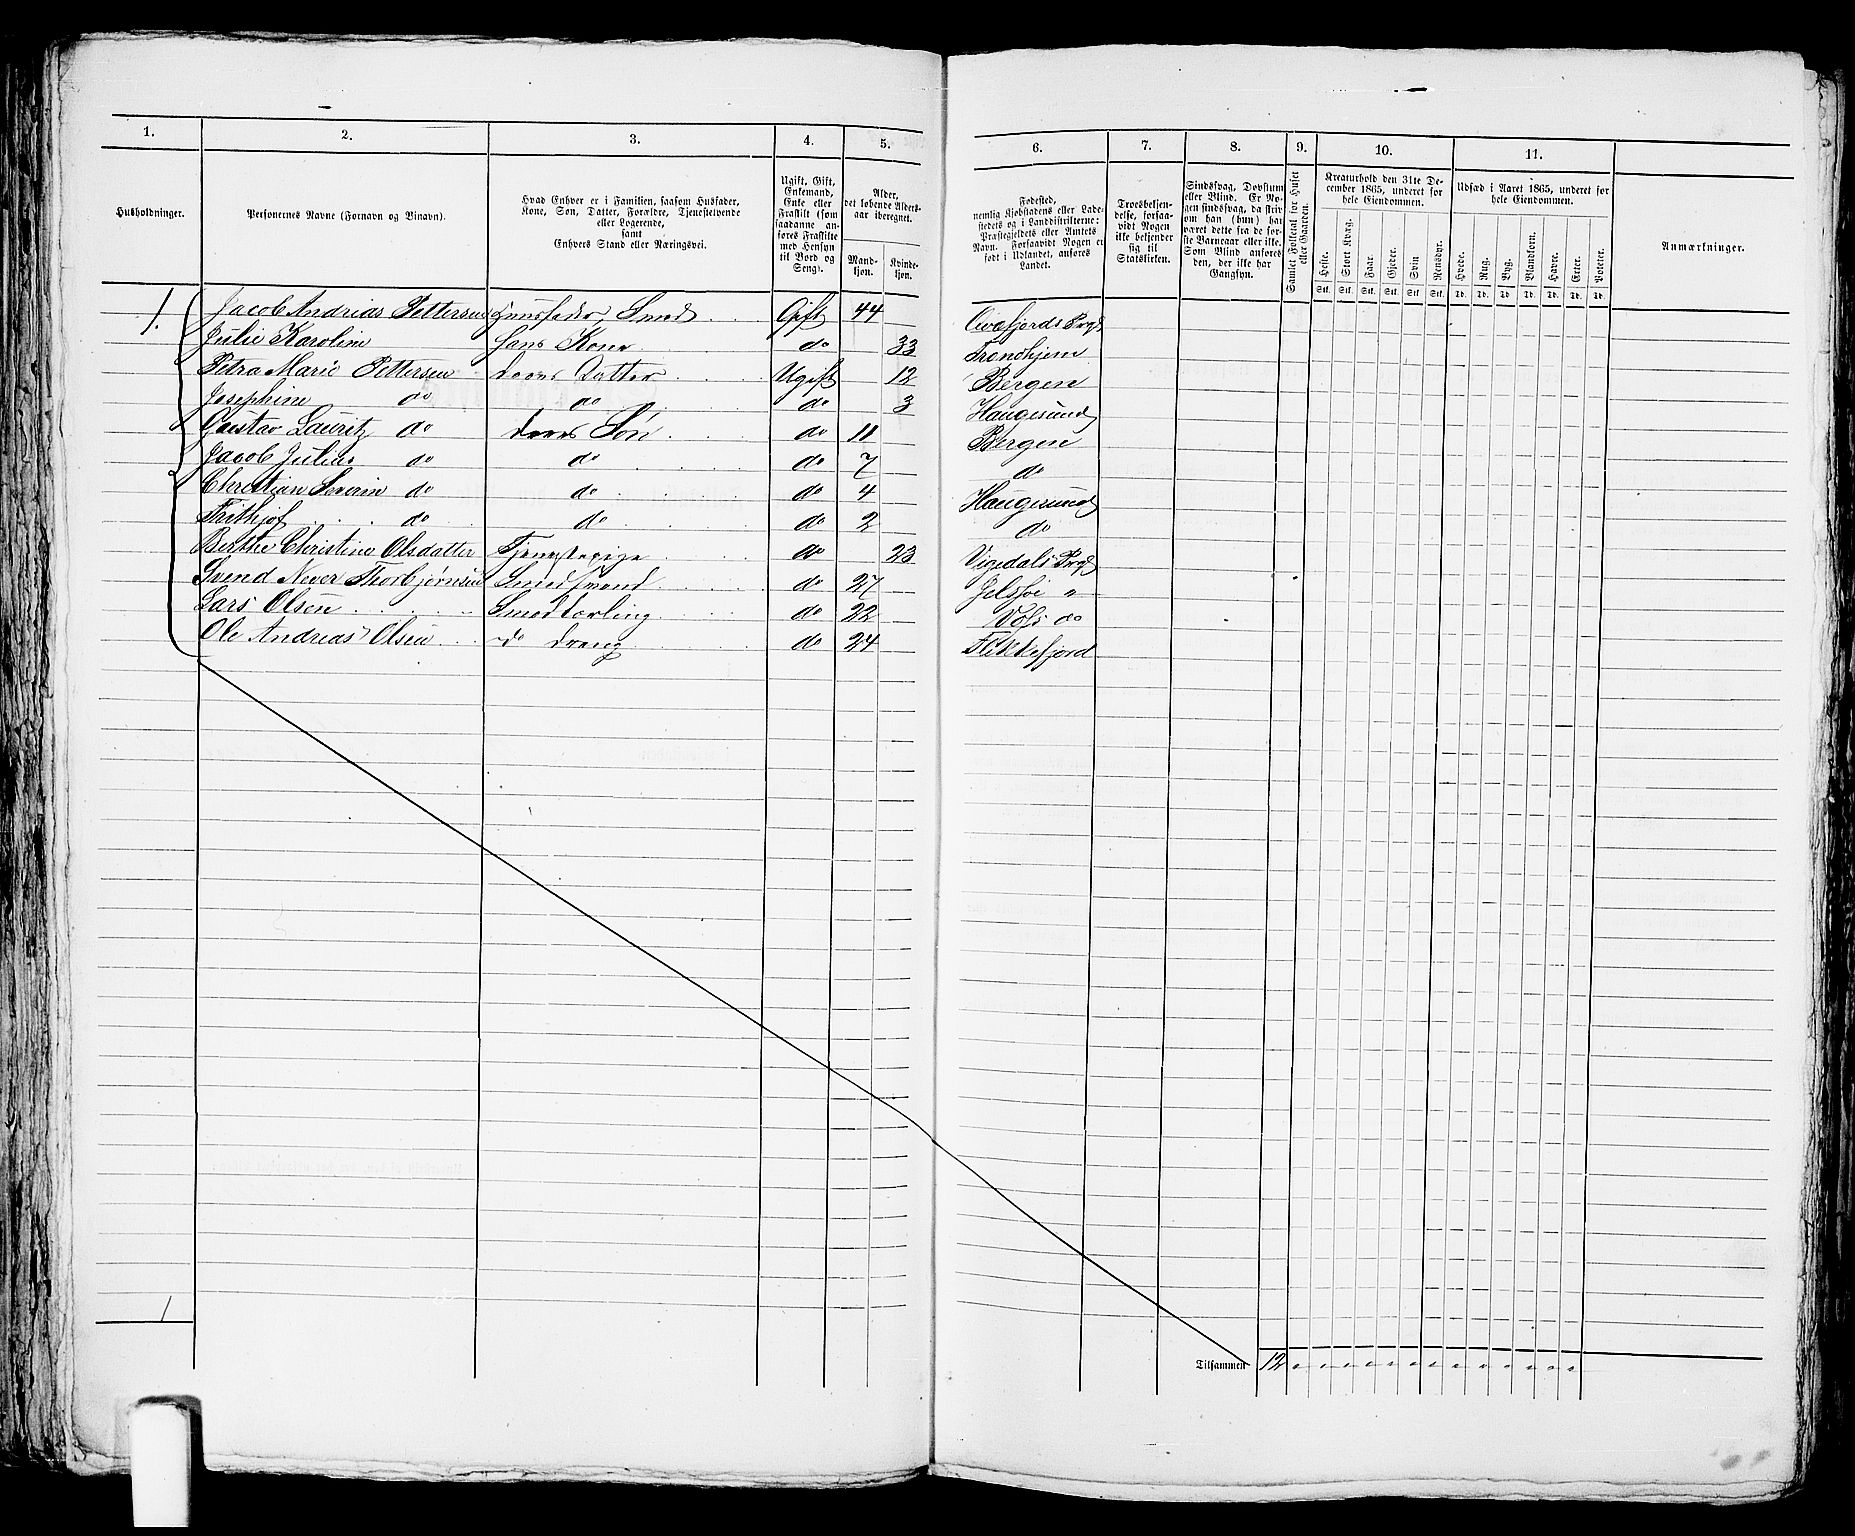 1. 2. 3. 4. 5. 6. 7. 8. 9. 10. 11.
Husholdninger.
Personernes Navne (Fornavn og Binavn).
Hvad Enhver er i Familien, saasom Husfader,
Kone, Søn, Datter, Forældre, Tjenestetyende
eller Logerende,
samt
Enhvers Stand eller Næringsvei.
Ugift, Gift,
Enkemand,
Enke eller
Fraskilt (som
saadanne an-
føres Fraskilte
med Hensyn
til Bord og
Seng).
Alder,
det løbende Alders-
aar iberegnet.
Mand-
kjøn.
Kvinde-
kjøn.
Fødested,
nemlig Kjøbstadens eller Lade-
stedets og i Landdistrikterne:
Præstegjeldets eller Amtets
Navn. Forsaavidt Nogen er
født i Udlandet, anføres
Landet.
Troesbekjen-
delse, forsaa-
vidt Nogen
ikke bekjender
sig til
Statskirken.
Sindssvag, Døvstum
eller Blind. Er No-
gen sindssvag, da skriv
om han (hun) har
været dette fra de før-
ste Barneaar eller ikke.
Som Blind anføres
den, der ikke har
Gangsyn.
Samlet Folketal for Huset
eller Gaarden.
Kreaturhold den 31te De-
cember 1865, underet for
hele Eiendommen.
Heste. Stort Kvæg. Faar. Gjeder. Svin Rensdyr.
Stk. Stk. Stk. Stk. Stk. Stk.
Udsæd i Aaret 1865, underet for
hele Eiendommen.
Hvede. Rug. Byg. Blandkorn. Havre. Erter. Poteter.
Td. Td. Td. Td. Td. Td. Td.
Anmærkninger.
1. Jacob Andreas Pettersen Huusfader Smed Gift 44
Julie Karoline Hans Kone do 33 Trondhjem
Petra Marie Pettersen deres Datter Ugift 12 Bergen
Josephine do do do 3 Haugesund
Gustav Lauritz do deres Søn do 11 Bergen
Jacob Julius do do do 7 do
Christian Severin do do do 4 Haugesund
Frithjof do do do 2 do
Berthe Christine Olsdatter Tjenestepige do 23 Vigedals Prgj
Svend Never Thorbjørnsen Smedsvend do 27 Jelssøe "
Lars Olsen Smedlærling do 22 do
Ole Andreas Olsen do dreng do 24 Flekkefjord
1
Tilsammen 12 " " " " " " " " " " " "